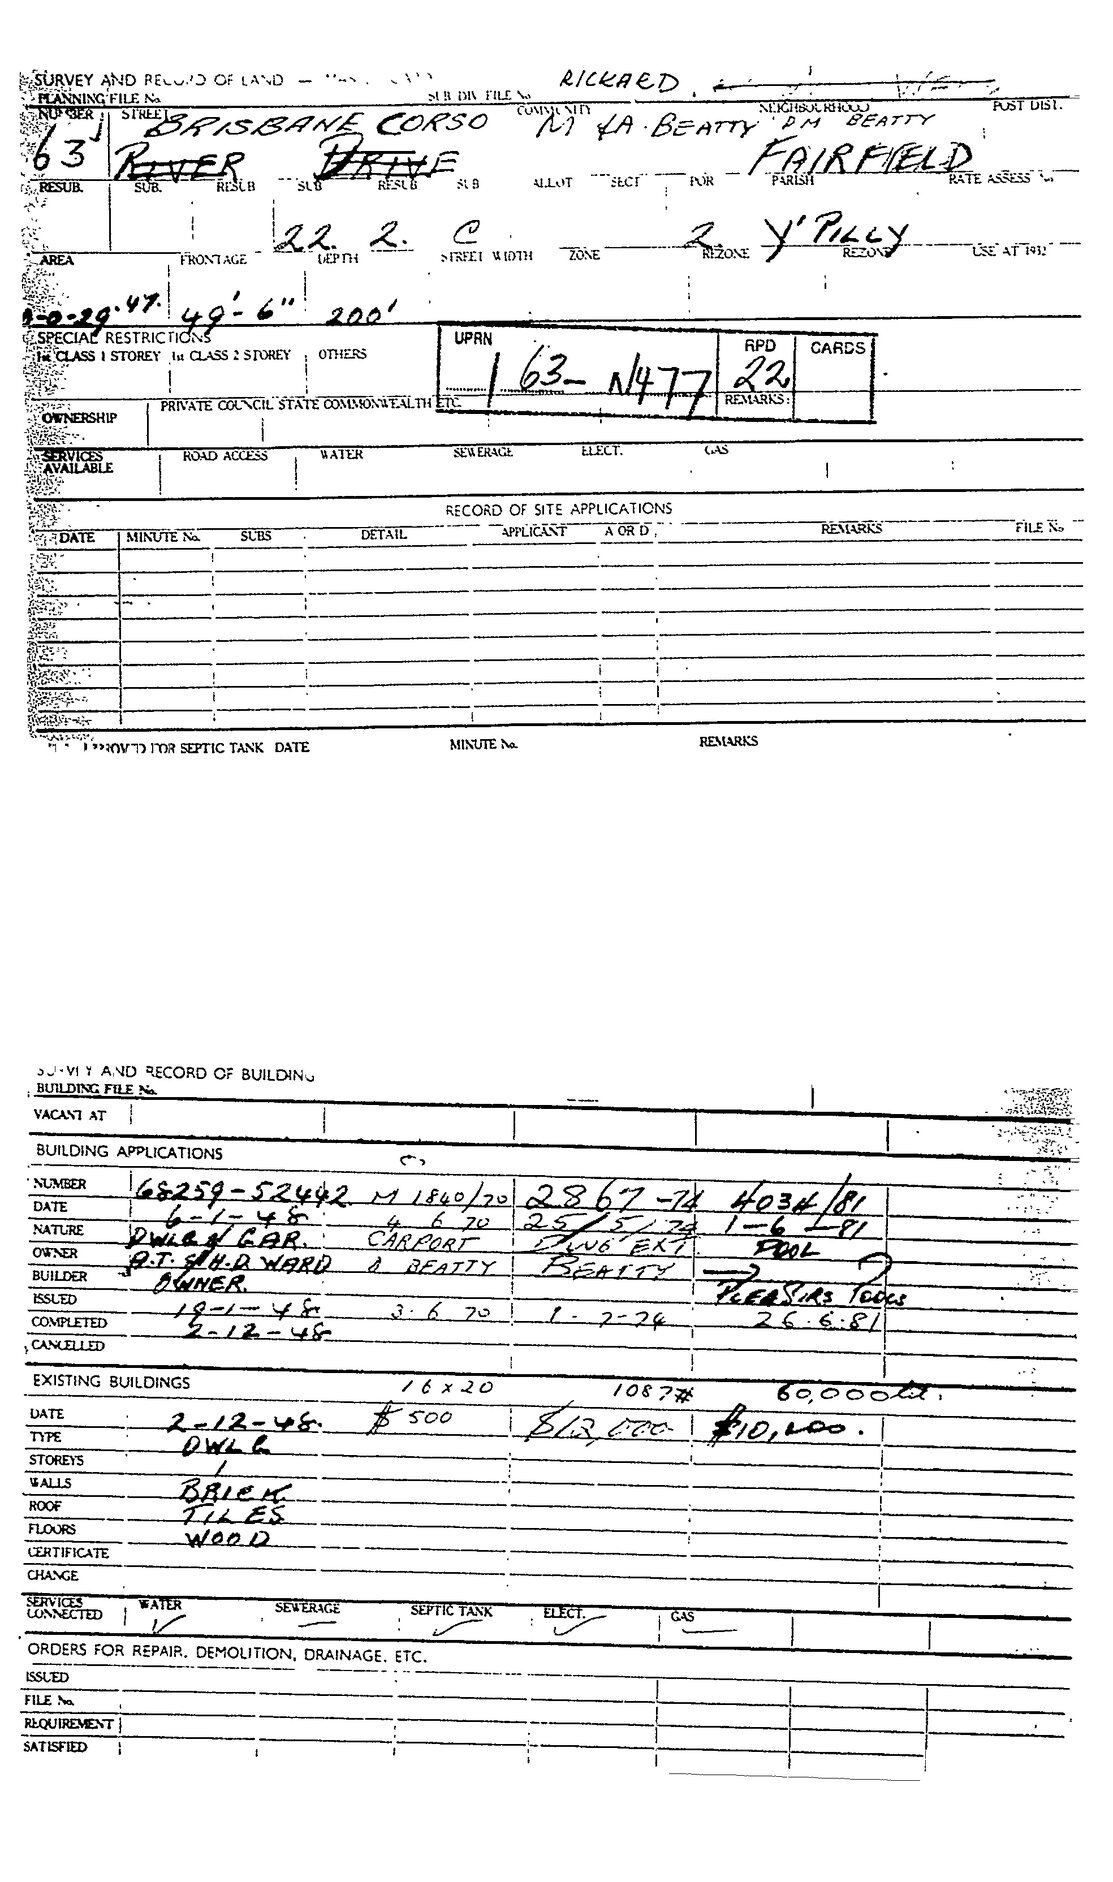 SURVEY AND RECORD OF LAND — RICKARD
PLANNING FILE No. SUB DIV. FILE No.
NUMBER STREET COMMUNITY NEIGHBOURHOOD POST DIST.
63 BRISBANE CORSO M & A BEATTY DM BEATTY
RIVER DRIVE FAIRFIELD
RESUB. SUB. RESUB SUB RESUB SUB ALLOT SECT POR PARISH RATE ASSESS No
22. 2. C 2 Y'PILLY
AREA FRONTAGE DEPTH STREET WIDTH ZONE REZONE REZONE USE AT 1932
-0-29.47. 49'-6" 200'
SPECIAL RESTRICTIONS
1st CLASS 1 STOREY 1st CLASS 2 STOREY OTHERS
UPRN RPD CARDS
1 63- N477 22
REMARKS:
OWNERSHIP PRIVATE COUNCIL STATE COMMONWEALTH ETC.
SERVICES AVAILABLE ROAD ACCESS WATER SEWERAGE ELECT. GAS
RECORD OF SITE APPLICATIONS
DATE MINUTE No. SUBS DETAIL APPLICANT A OR D REMARKS FILE No
APPROVED FOR SEPTIC TANK DATE MINUTE No. REMARKS
SURVEY AND RECORD OF BUILDING
BUILDING FILE No.
VACANT AT
BUILDING APPLICATIONS
NUMBER 68259-52442 M 1840/70 2867-74 4034/81
DATE 6-1-48 4 6 70 25/5/74 1-6-81
NATURE DWLG & GAR. CARPORT DWG EXT POOL
OWNER A.T. & H.D. WARD BEATTY BEATTY
BUILDER OWNER. POOLS
ISSUED 19-1-48 3.6.70 1-7-74 26.6.81
COMPLETED 2-12-48
CANCELLED
EXISTING BUILDINGS 16 x 20 1087# 60,000 lit.
DATE 2-12-48. $500 $12,000 $10,000.
TYPE DWLG
STOREYS 1
WALLS BRICK
ROOF TILES
FLOORS WOOD
CERTIFICATE
CHANGE
SERVICES CONNECTED WATER SEWERAGE SEPTIC TANK ELECT. GAS
ORDERS FOR REPAIR, DEMOLITION, DRAINAGE, ETC.
ISSUED
FILE No.
REQUIREMENT
SATISFIED